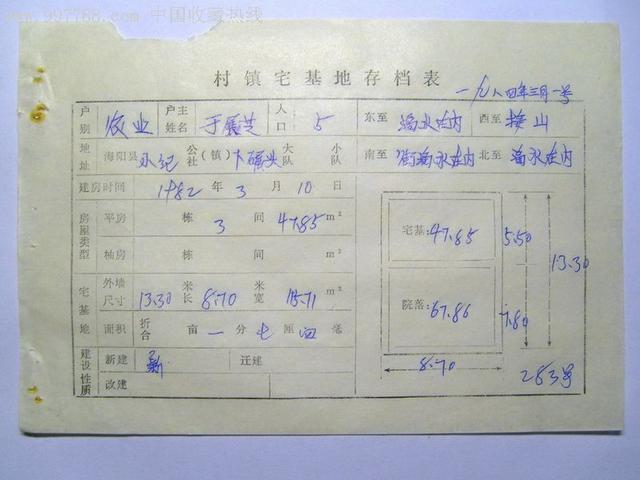 www.997788.com 中国收藏热线
村镇宅基地存档表
一九八四年三月一号
户别 农业 户主姓名 于 芝 人口 5 东至 滴水在内 西至 接山
地址 海阳县 小纪 公社(镇) 大队 小队 南至 街滴水在内 北至 滴水在内
建房时间 1982 年 3 月 10 日
房屋类型 平房 栋 3 间 47.85 m²
楼房 栋 间 m²
宅基地 外墙尺寸 13.30 米长 8.70 米宽 115.71 m²
面积 折合 亩 一 分 七 厘 四 毫
建设性质 新建 新 迁建
改建
宅基: 47.85 5.50
院落: 67.86 7.80
13.30
8.70
283号